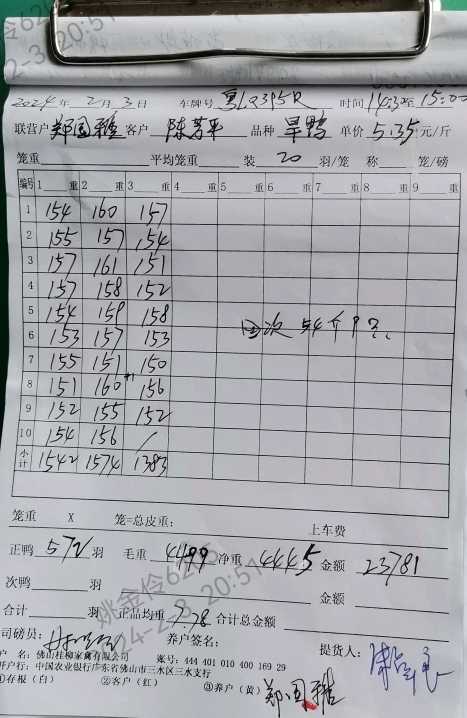 2024年 2月 3日 车牌号 粤LQ395R 时间 14:30至 15:00
联营户 郑国雅 客户 陈芳平 品种 旱鸭 单价 5.35元/斤
笼重 平均笼重 装 20 羽/笼 称 笼/磅
编号 1 重 2 重 3 重 4 重 5 重 6 重 7 重 8 重 9 重
1 154 160 157
2 155 157 154
3 157 161 151
4 157 158 152
5 154 159 158
6 153 157 153
7 155 151 150
8 151 160 #1 156
9 152 155 152
10 154 156 /
小计 1542 1574 1383
54斤
笼重 X 笼=总皮重: 上车费
正鸭 572羽 毛重 4499 净重 4445 金额 23781
次鸭 羽 金额
合计 羽 正品均重 7.78 合计总金额
司磅员: 养户签名: 提货人:
户 名: 佛山桂柳家禽有限公司 账号: 444 401 010 400 169 29
开户行: 中国农业银行广东省佛山市三水区三水支行
①存根（白） ②客户（红） ③养户（黄） 郑国雅
姚金伶62
2024-2-3 20:51